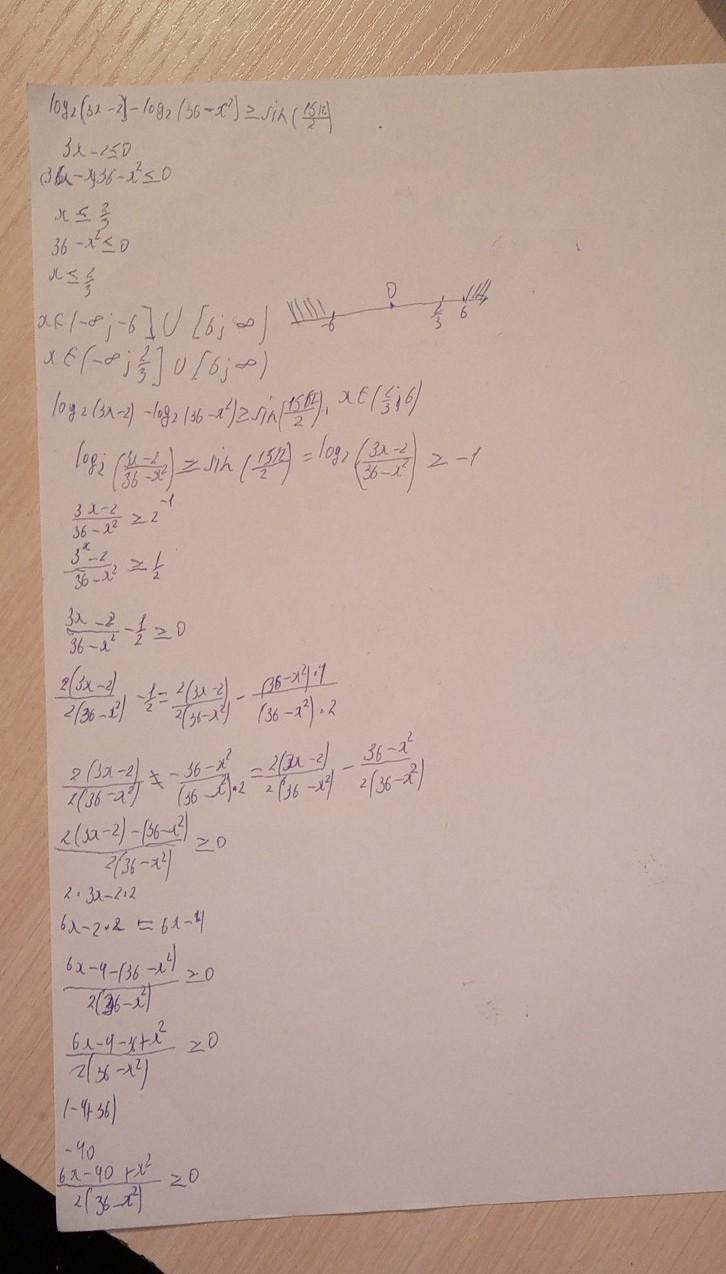 log₂(3x-2)-log₂(36-x²)≥sin(15π/2)
3x-2≤0
36-x²≤0
x≤2/3
36-x²≤0
x≤2/3
x∈(-∞;-6]∪[6;∞)
-6 0 2/3 6
x∈(-∞;2/3]∪[6;∞)
log₂(3x-2)-log₂(36-x²)≥sin(15π/2), x∈(2/3;6)
log₂((3x-2)/(36-x²))≥sin(15π/2)=log₂((3x-2)/(36-x²))≥-1
(3x-2)/(36-x²)≥2⁻¹
(3x-2)/(36-x²)≥1/2
(3x-2)/(36-x²)-1/2≥0
2(3x-2)/2(36-x²)-1/2=2(3x-2)/2(36-x²)-(36-x²)·1/(36-x²)·2
2(3x-2)/2(36-x²)-(36-x²)/(36-x²)·2=2(3x-2)/2(36-x²)-(36-x²)/2(36-x²)
(2(3x-2)-(36-x²))/2(36-x²)≥0
2·3x-2·2
6x-2·2=6x-4
(6x-4-(36-x²))/2(36-x²)≥0
(6x-4-36+x²)/2(36-x²)≥0
(-4+36)
-40
(6x-40+x²)/2(36-x²)≥0